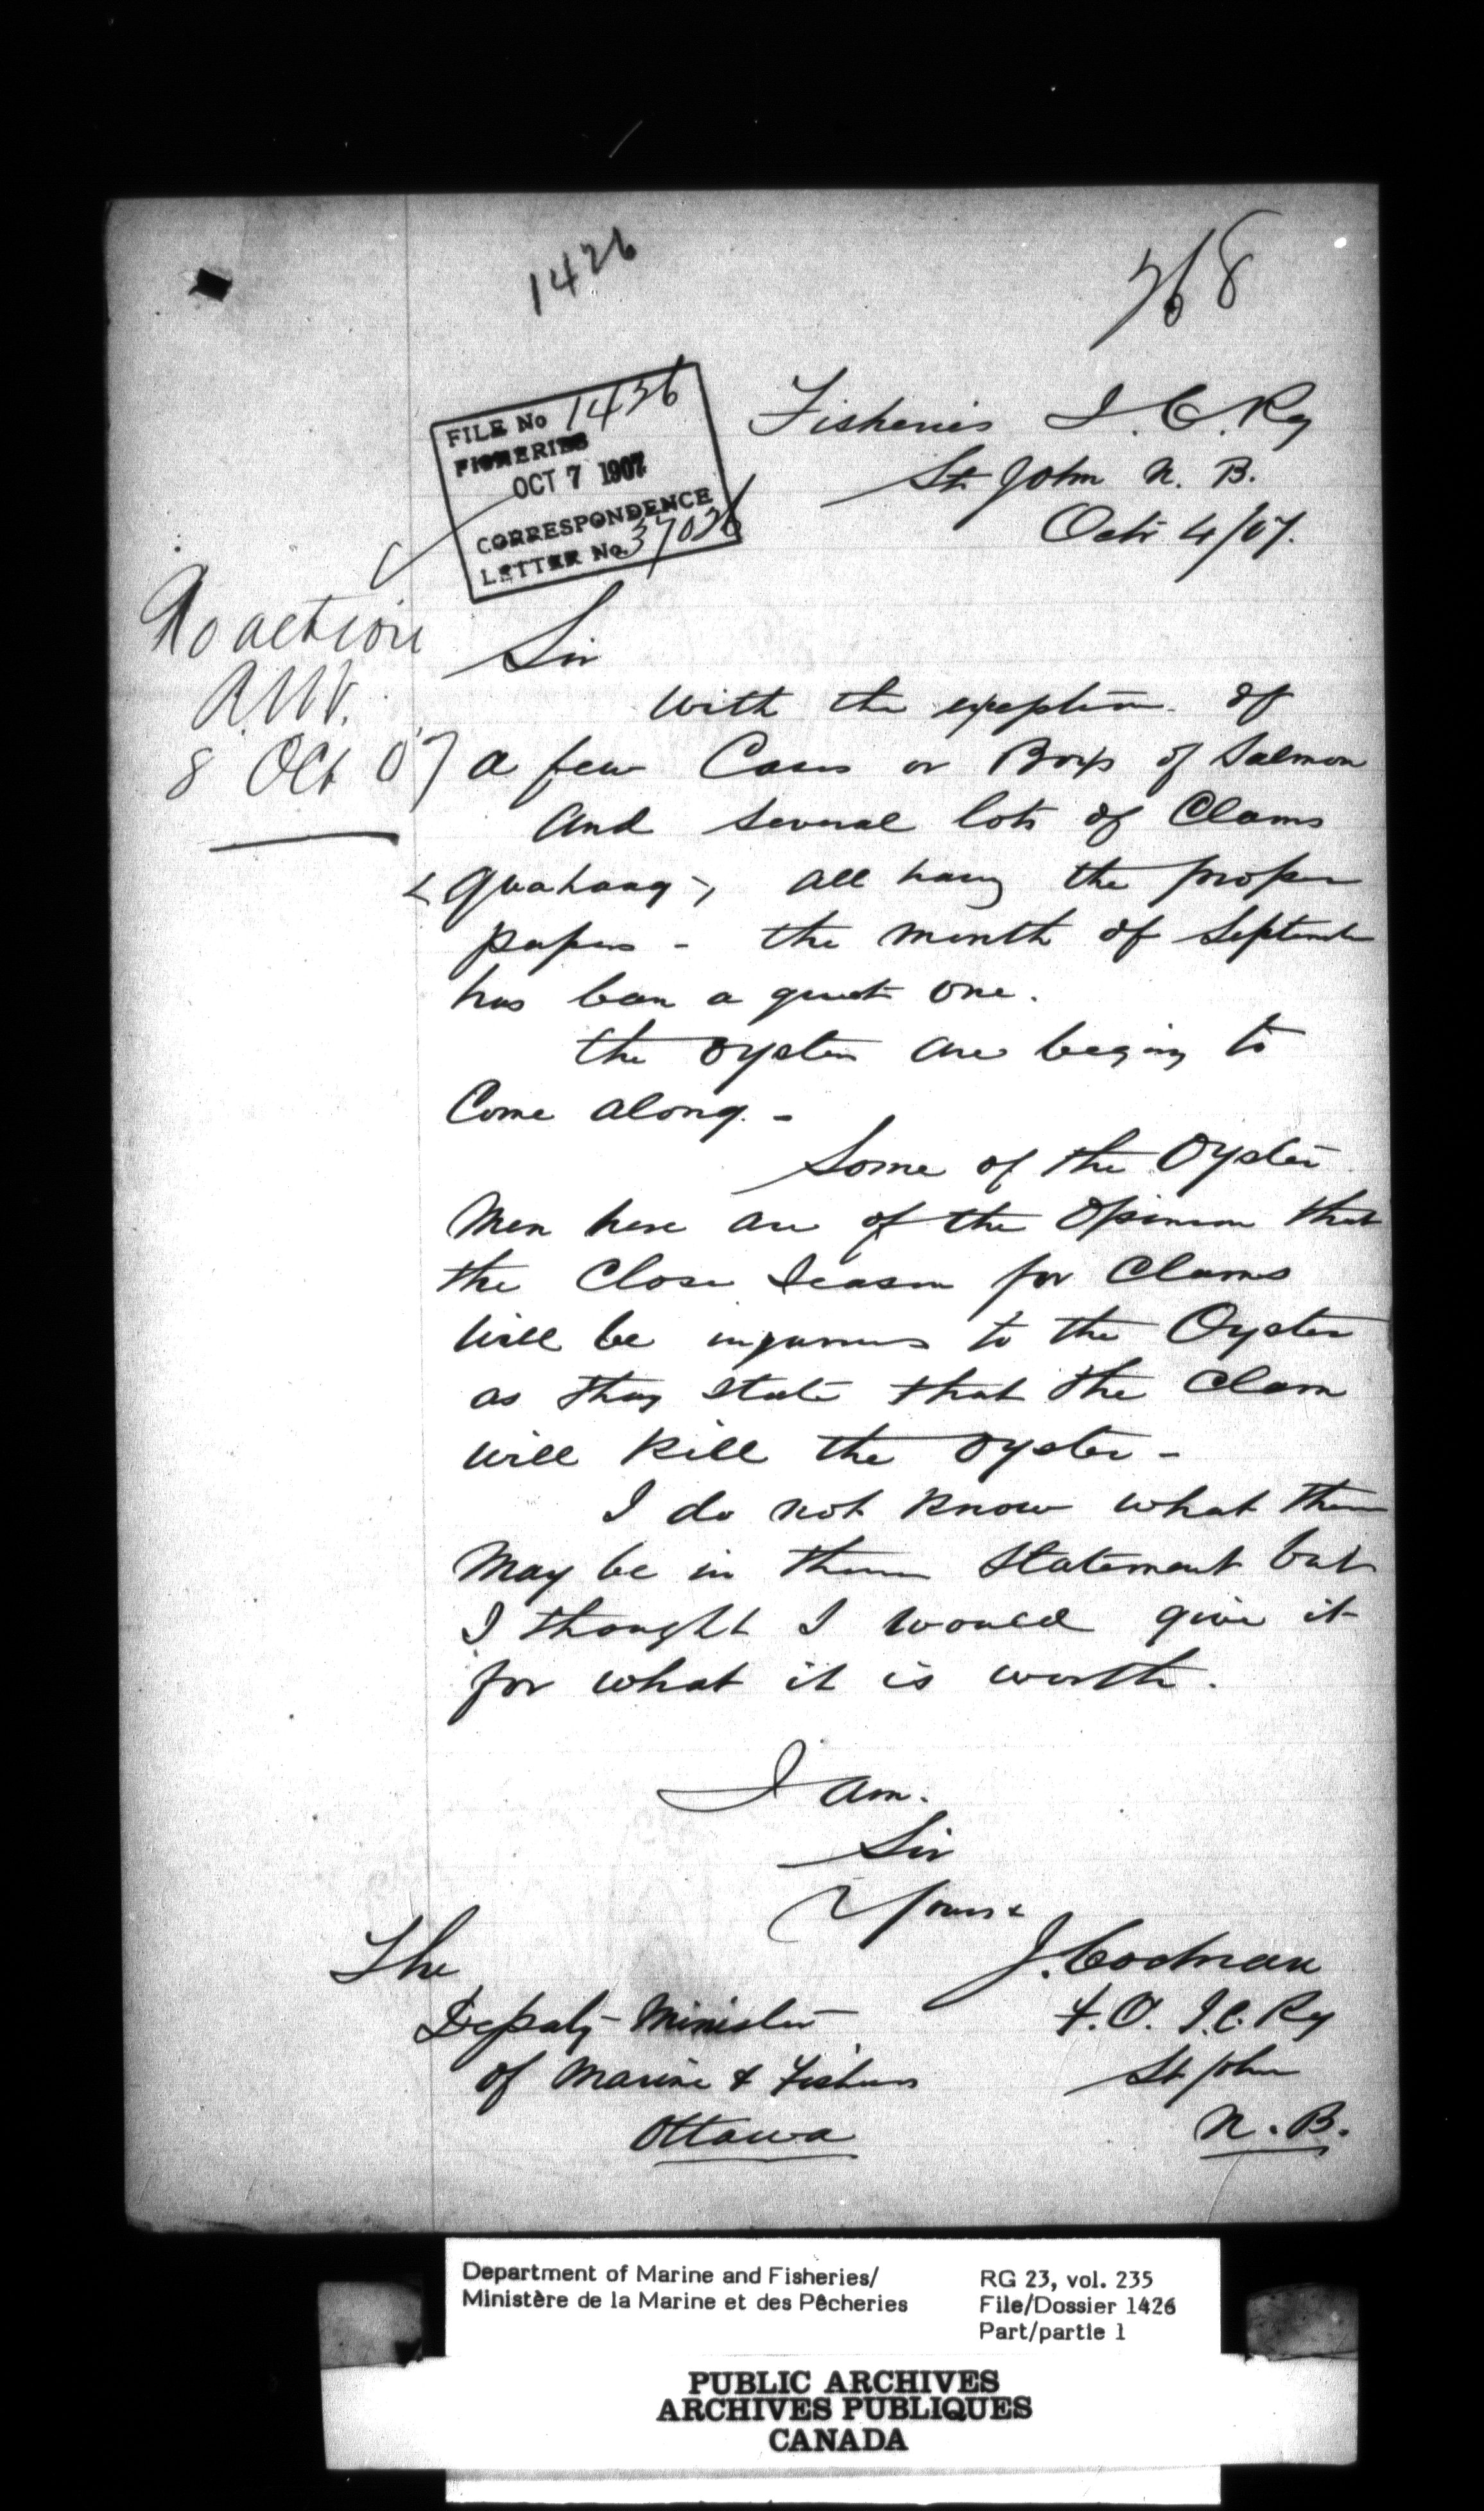 1426
368
FILE No 1436
FISHERIES
OCT 7 1907
CORRESPONDENCE
LETTER No. 37026
Fisheries I. C. Ry
St. John N. B.
Octr 4/07.
No action
8 Oct 07
Sir
With the exception of
a few Cases or Boxs of Salmon
and several lots of Clams
& Quahaug -, all having the proper
papers - the month of September
has been a quiet one.
the oysters are begining to
Come along. -
Some of the Oyster
Men here are of the opinion that
the Close Season for Clams
will be injurious to the Oyster
as they state that the Clam
will kill the oyster -
I do not know what there
may be in there statement but
I thought I would give it
for what it is worth.
I am.
Sir
Yours &
J. Codman
F. O. I. C. Ry
St John
N. B.
The
Deputy Minister
of Marine & Fisheries
Ottawa
Department of Marine and Fisheries/
Ministère de la Marine et des Pêcheries
RG 23, vol. 235
File/Dossier 1426
Part/partie 1
PUBLIC ARCHIVES
ARCHIVES PUBLIQUES
CANADA